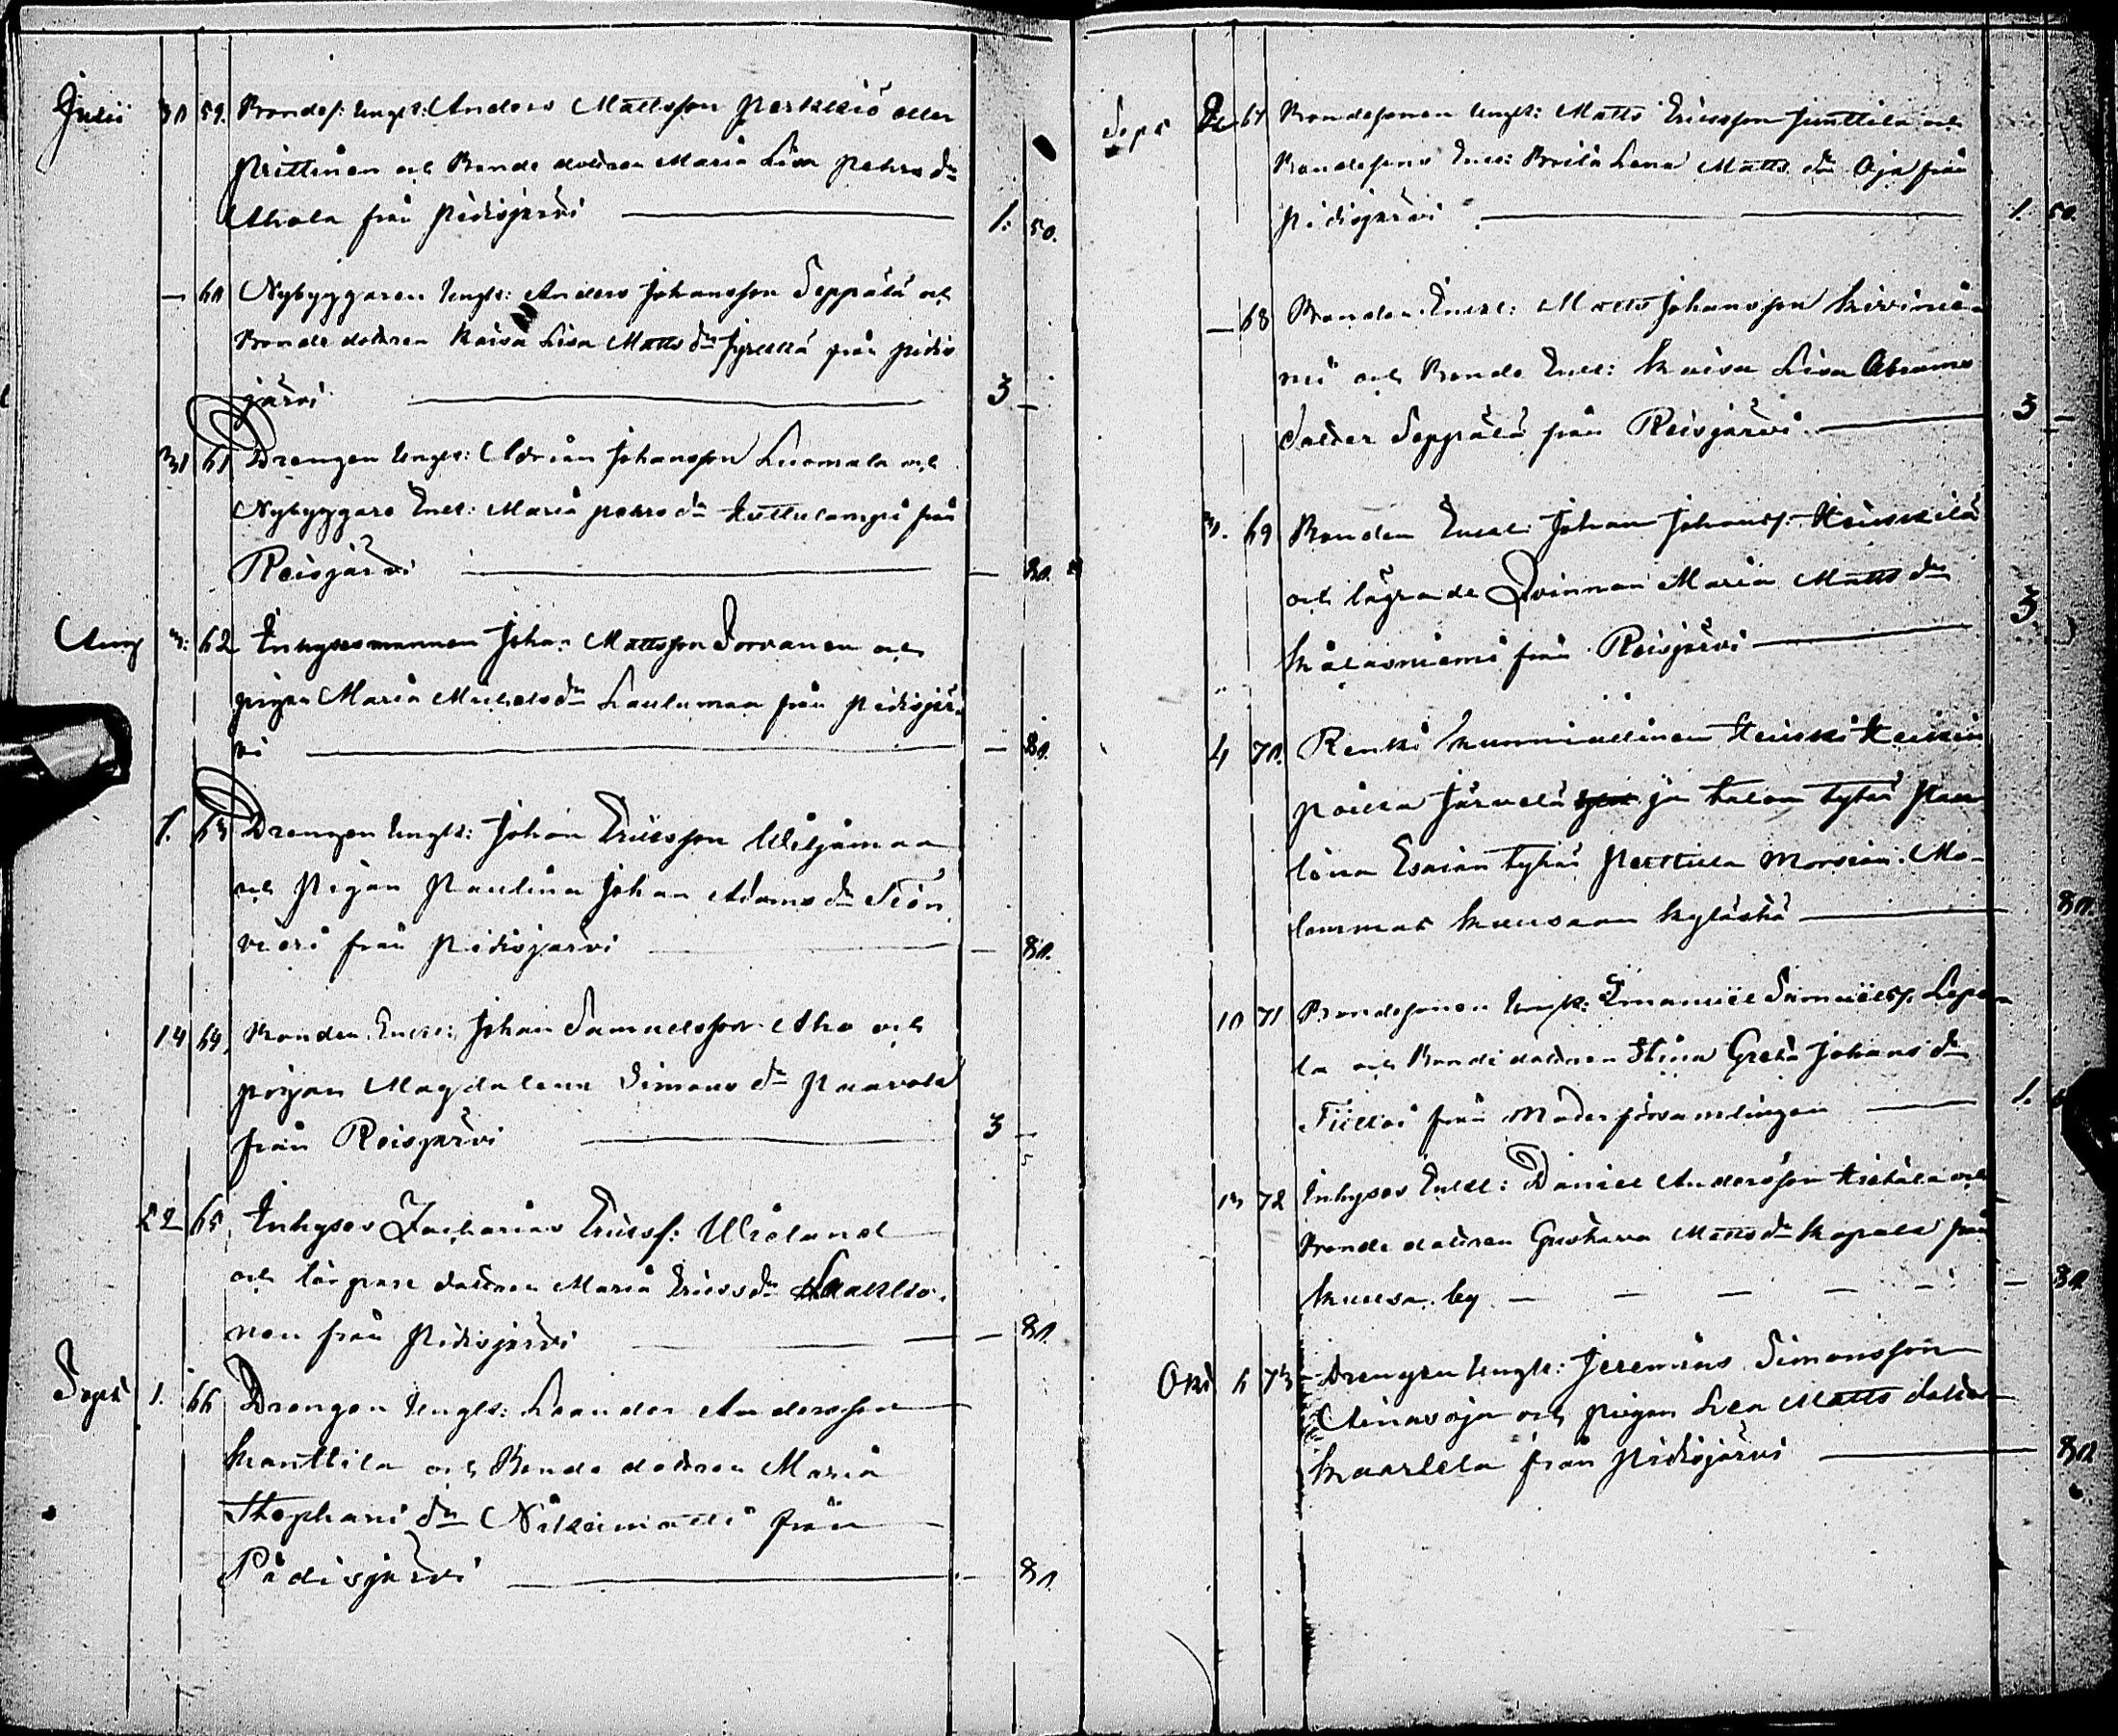 Julii 30 59. Bondes. Ungk: Anders Mattsson Perkkiö eller
Prittinen och Bonde dottren Maria Lisa Pehrs dr
Ahola från Pidisjärvi — 1. 50.
— 60 Nybyggaren Ungk: Anders Johansson Seppälä och
Bonde dottren Kaisa Lisa Matts dr Jyrkkä från Pidis
järvi — 3 —
31 61 Drengen Ungk: Adrian Johansson Luomala och
Nybyggare Enk: Maria Pehrs dr Kuttulampi från
Reisjärvi — 80.
Aug 3. 62 Inhysesmannen Johan Mattsson Sorvanen och
pigan Maria Michels dr Laulumaa från Pidisjär-
vi — 80.
7. 63 Drengen Ungk: Johan Ericsson Wiljamaa
och Pigan Paulina Johan Adams dr Siön
vieri från Pidisjärvi — 80.
14 64. Bonden Enkl: Johan Samuelsson Aho och
pigan Magdalena Simons dr Paavola
från Reisjärvi — 3 —
22 65 Inhyses Zacharias Ericss: Wieland
och torpare dottren Maria Erics dr
nen från Pidisjärvi — 80.
Sept 1. 66 Drengen Ungk: Leander Andersson
Kanttila och Bonde dottren Maria
Stephani dr Niskimäki från
Pidisjärvi — 80.
Sept 2 67 Bondesonen Ungk: Matts Ericsson Junttila och
Bondesons Enk: Brita Lena Matts dr Oja från
Pidisjärvi — 1. 50.
— 68 Bonden Enkl: Matts Johansson Kiviniee
mi och Bonde Enk: Kaisa Lisa Abrams
dotter Seppälä från Reisjärvi — 3 —
3. 69 Bonden Enkl: Johan Johanss: Heiskilä
och lägrade Qvinnan Maria Matts dr
Kälasniemi från Reisjärvi — 3.
4 70. Renki kunniallinen Heikki Heikin
poika Järvelä ja talon tytär Pau
liina Esaian tytär Perttula Morsian. Mo-
lemmat Kuusaan kylästä — 80.
10 71 Bondesonen Ungk: Emanuel Samuelss. Lepo
la och Bonde dottren Stina Greta Johans dr
från Moderförsamlingen — 1.
13 72 Inhyses Enkl: Daniel Andersson Hietala och
Bonde dottren Gustava Matts dr Kopola från
Kuusa by — — — — — 80.
Okt 6 73 Drengen Ungk: Jeremias Simonsson
Ainasoja och pigan Lisa Matts dotter
Kaarlela från Pidisjärvi — 80